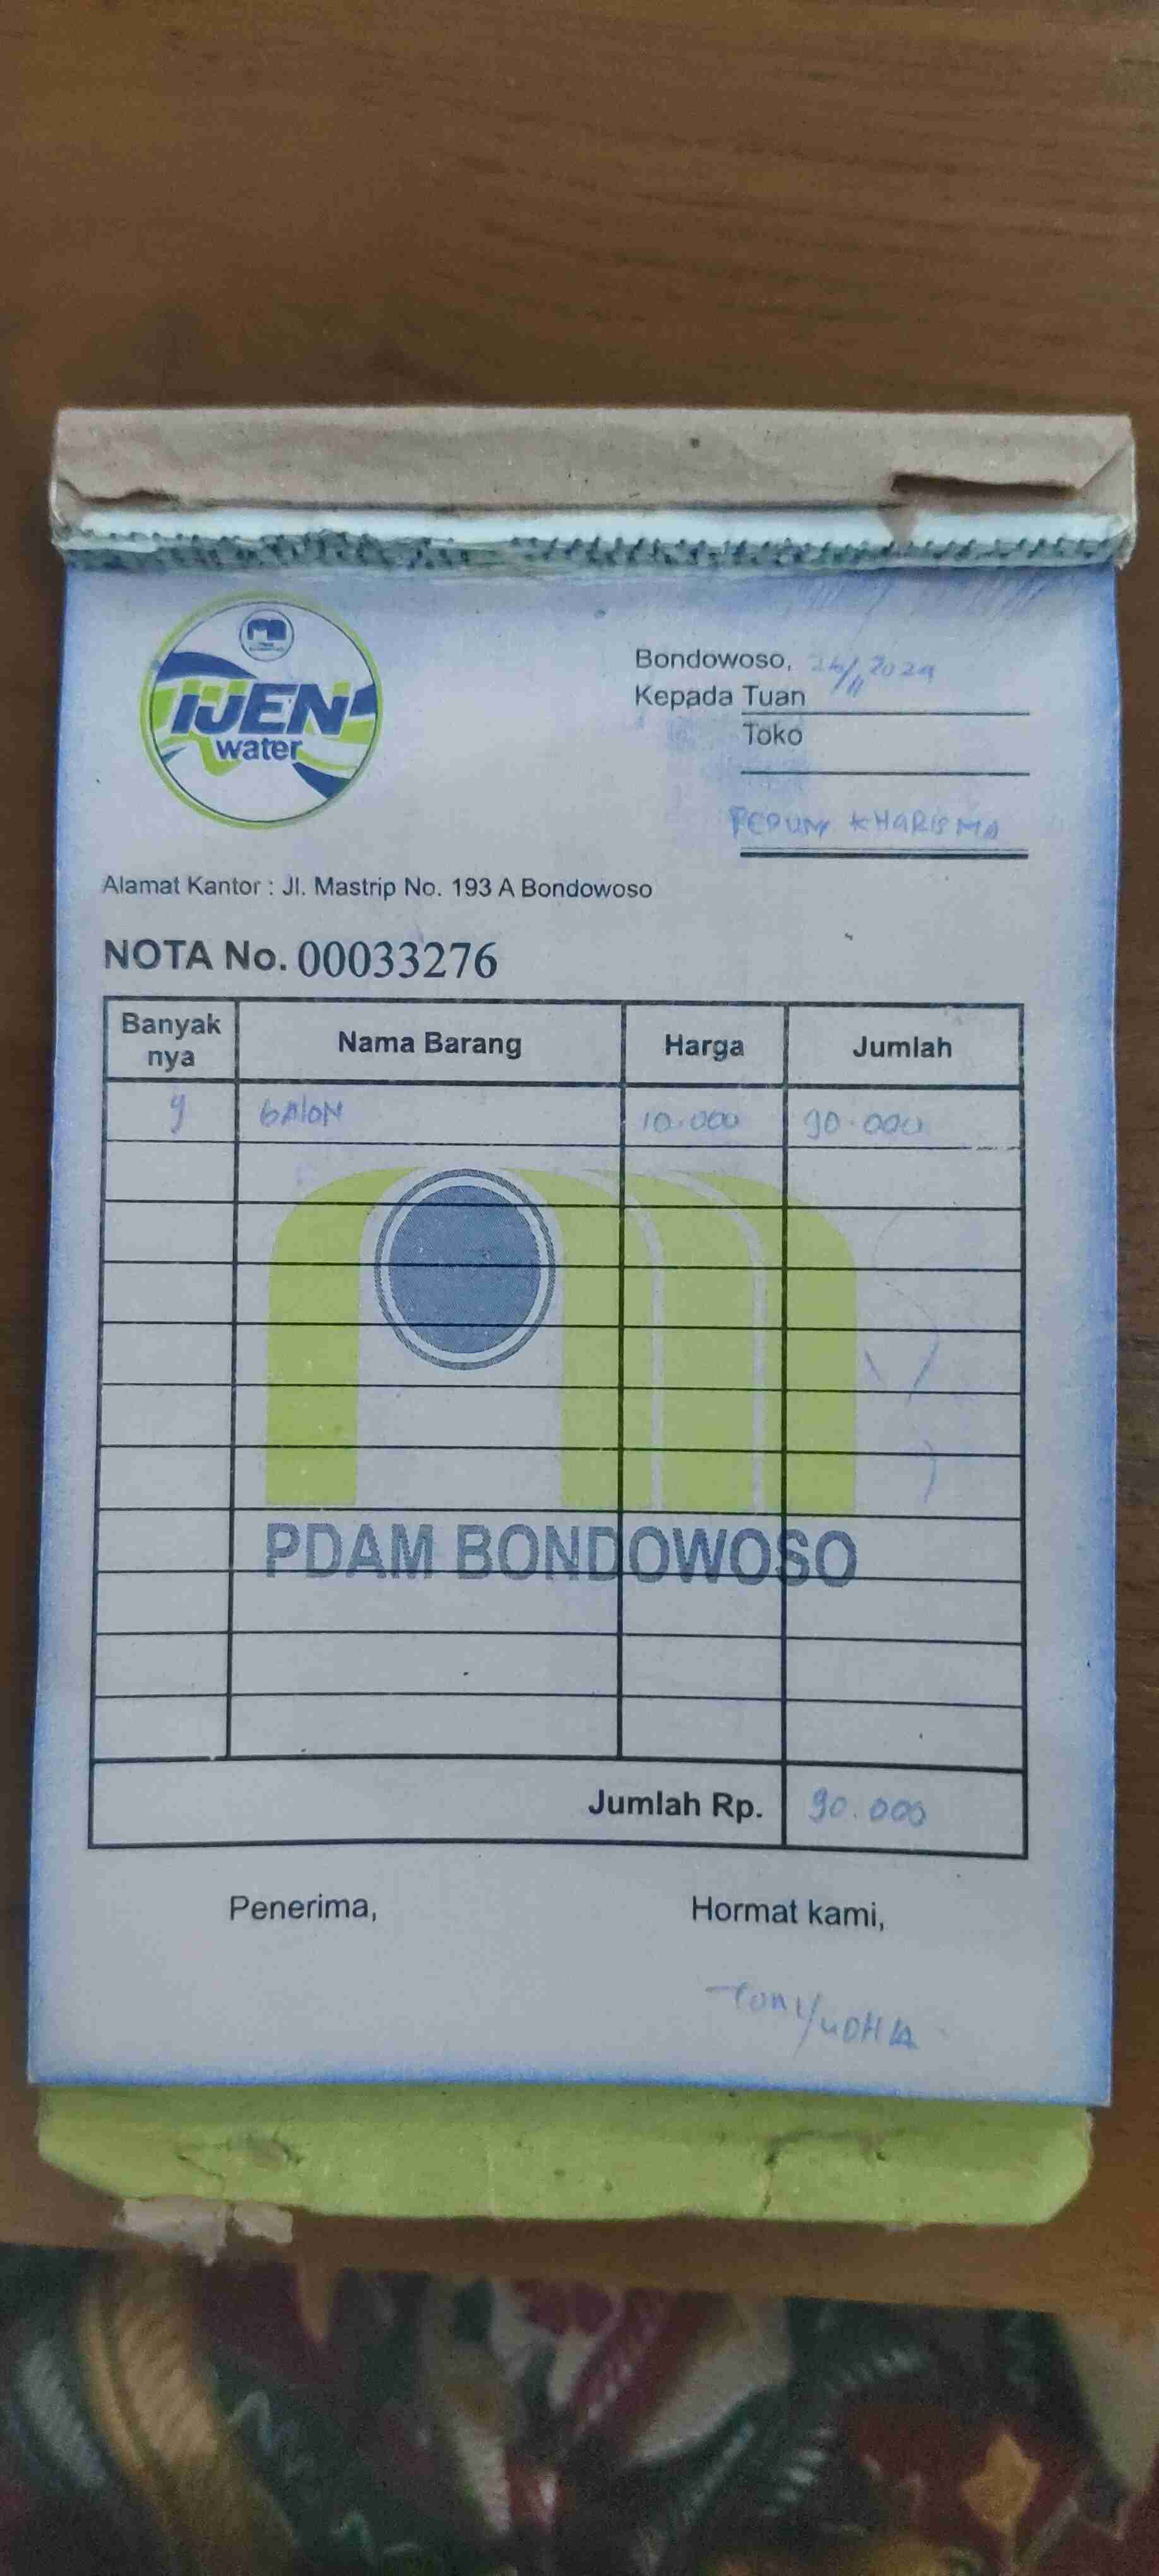 IJEN
water
Bondowoso, 26/11 2024
Kepada Tuan
Toko
PERUM KHARISMA
Alamat Kantor : Jl. Mastrip No. 193 A Bondowoso
NOTA No. 00033276
Banyak nya Nama Barang Harga Jumlah
9 GALON 10.000 90.000
PDAM BONDOWOSO
Jumlah Rp. 90.000
Penerima, Hormat kami,